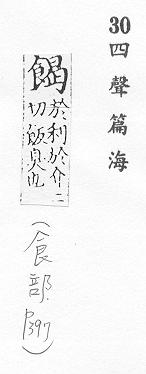 30四聲篇海
餲
於利於介二
切飯臭也
(食部.
P397)